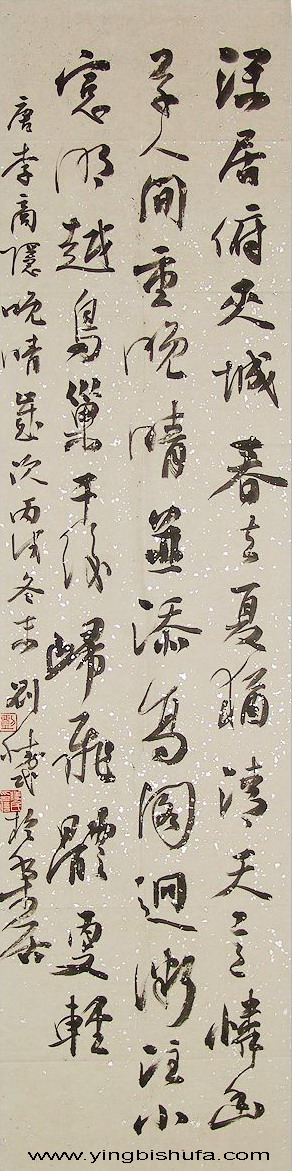 深居俯夾城春去夏猶清天意憐幽
草人間重晚晴並添高閣迥微注小
窓明越鳥巢干後歸飛體更輕
唐李商隱晚晴歲次丙戌冬劉
www.yingbishufa.com